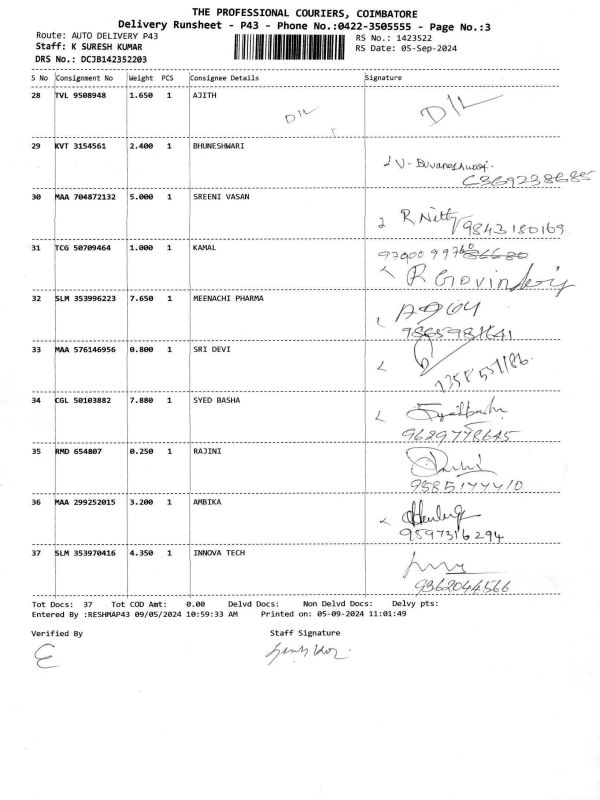 THE PROFESSIONAL COURIERS, COIMBATORE
Delivery Runsheet - P43 - Phone No.:0422-3505555 - Page No.:3
Route: AUTO DELIVERY P43 RS No.: 1423522
Staff: K SURESH KUMAR RS Date: 05-Sep-2024
DRS No.: DCJB142352203
S No Consignment No Weight PCS Consignee Details Signature
28 TVL 9508948 1.650 1 AJITH
D/L D/L
29 KVT 3154561 2.400 1 BHUNESHWARI
V. Buvaneshwari
6369238685
30 MAA 704872132 5.000 1 SREENI VASAN
R Nitty 9843180169
31 TCG 50709464 1.000 1 KAMAL
R Govindaraj
32 SLM 353996223 7.650 1 MEENACHI PHARMA
33 MAA 576146956 0.800 1 SRI DEVI
34 CGL 50103882 7.880 1 SYED BASHA
Syedbasha
9629778645
35 RMD 654807 0.250 1 RAJINI
36 MAA 299252015 3.200 1 AMBIKA
9597316294
37 SLM 353970416 4.350 1 INNOVA TECH
9362044566
Tot Docs: 37 Tot COD Amt: 0.00 Delvd Docs: Non Delvd Docs: Delvy pts:
Entered By :RESHMAP43 09/05/2024 10:59:33 AM Printed on: 05-09-2024 11:01:49
Verified By Staff Signature